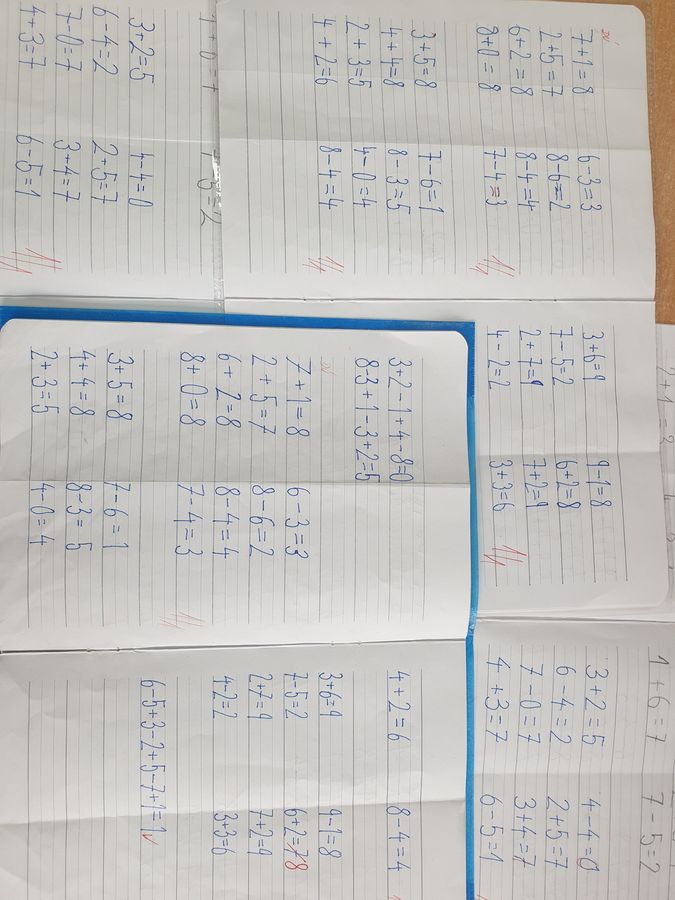 7+1=8 6-3=3
2+5=7 8-6=2
6+2=8 8-4=4
8+0=8 7-4=3
3+5=8 7-6=1
4+4=8 8-3=5
2+3=5 4-0=4
4+2=6 8-4=4
3+6=9 9-1=8
7-5=2 6+2=8
2+7=9 7+2=9
4-2=2 3+3=6
1+6=7 7-5=2
3+2=5 4-4=0
6-4=2 2+5=7
7-0=7 3+4=7
4+3=7 6-5=1
3+2-1+4-8=0
8-3+1-3+2=5
7+1=8 6-3=3
2+5=7 8-6=2
6+2=8 8-4=4
8+0=8 7-4=3
3+5=8 7-6=1
4+4=8 8-3=5
2+3=5 4-0=4
4+2=6 8-4=4
3+6=9 9-1=8
7-5=2 6+2=7 8
2+7=9 7+2=9
4-2=2 3+3=6
6-5+3-2+5-7+1=1
2+1=3
1+6=7 7-5=2
3+2=5 4-4=0
6-4=2 2+5=7
7-0=7 3+4=7
4+3=7 6-5=1